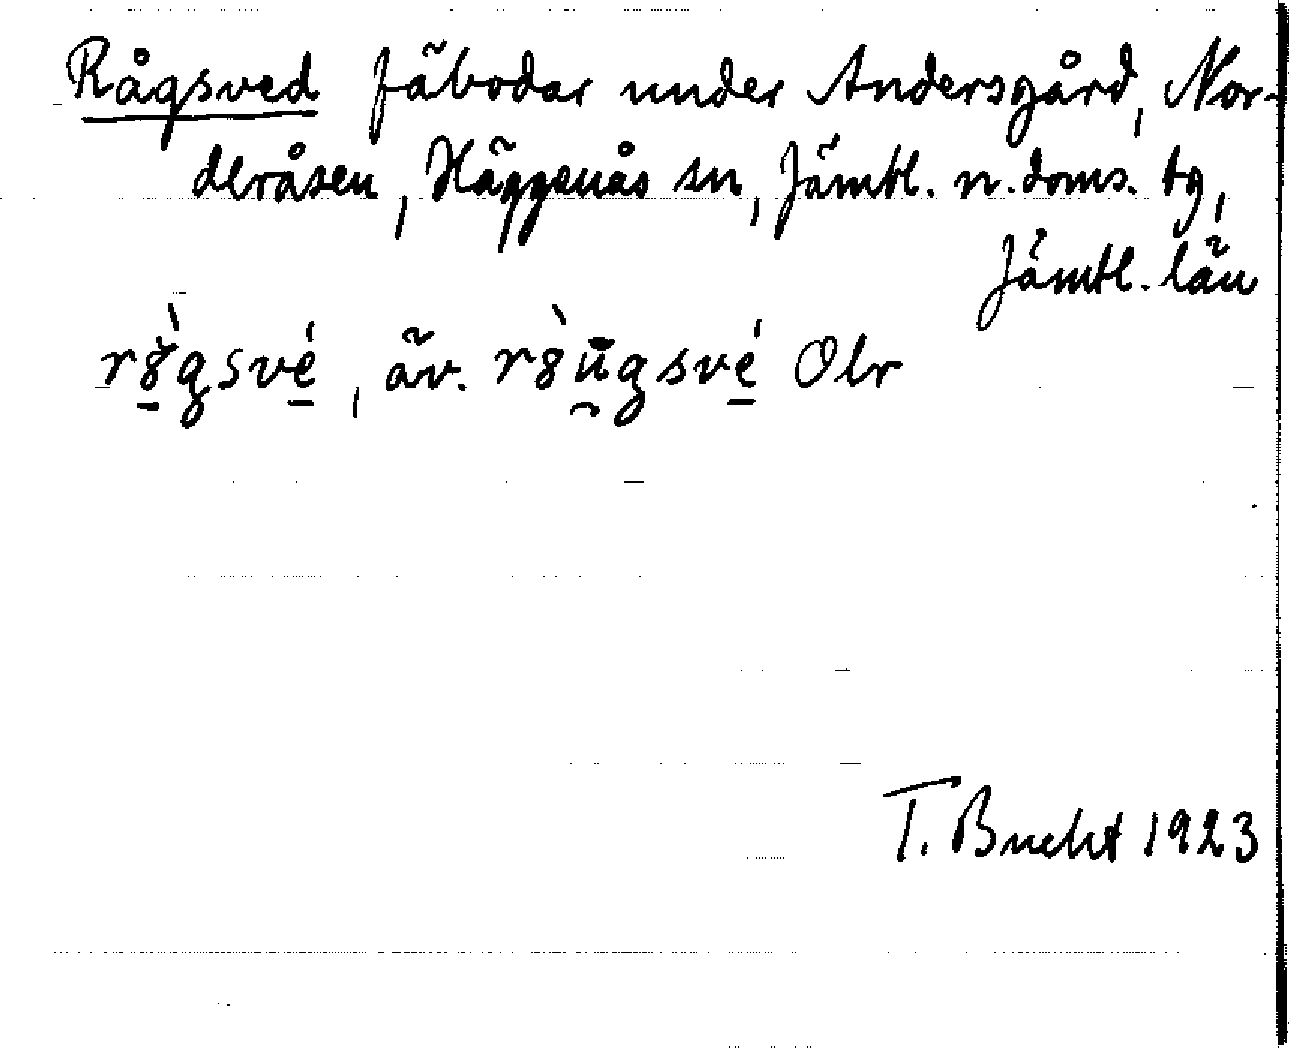 Rågsved fäbodar under Andersgård, Nor-
deråsen, Häggenås sn, Jämtl. n. doms. tg,
Jämtl. län
r8̱̀gsvé̱, äv. r8̀ū̯gsvé̱ Olr
T. Bucht 1923